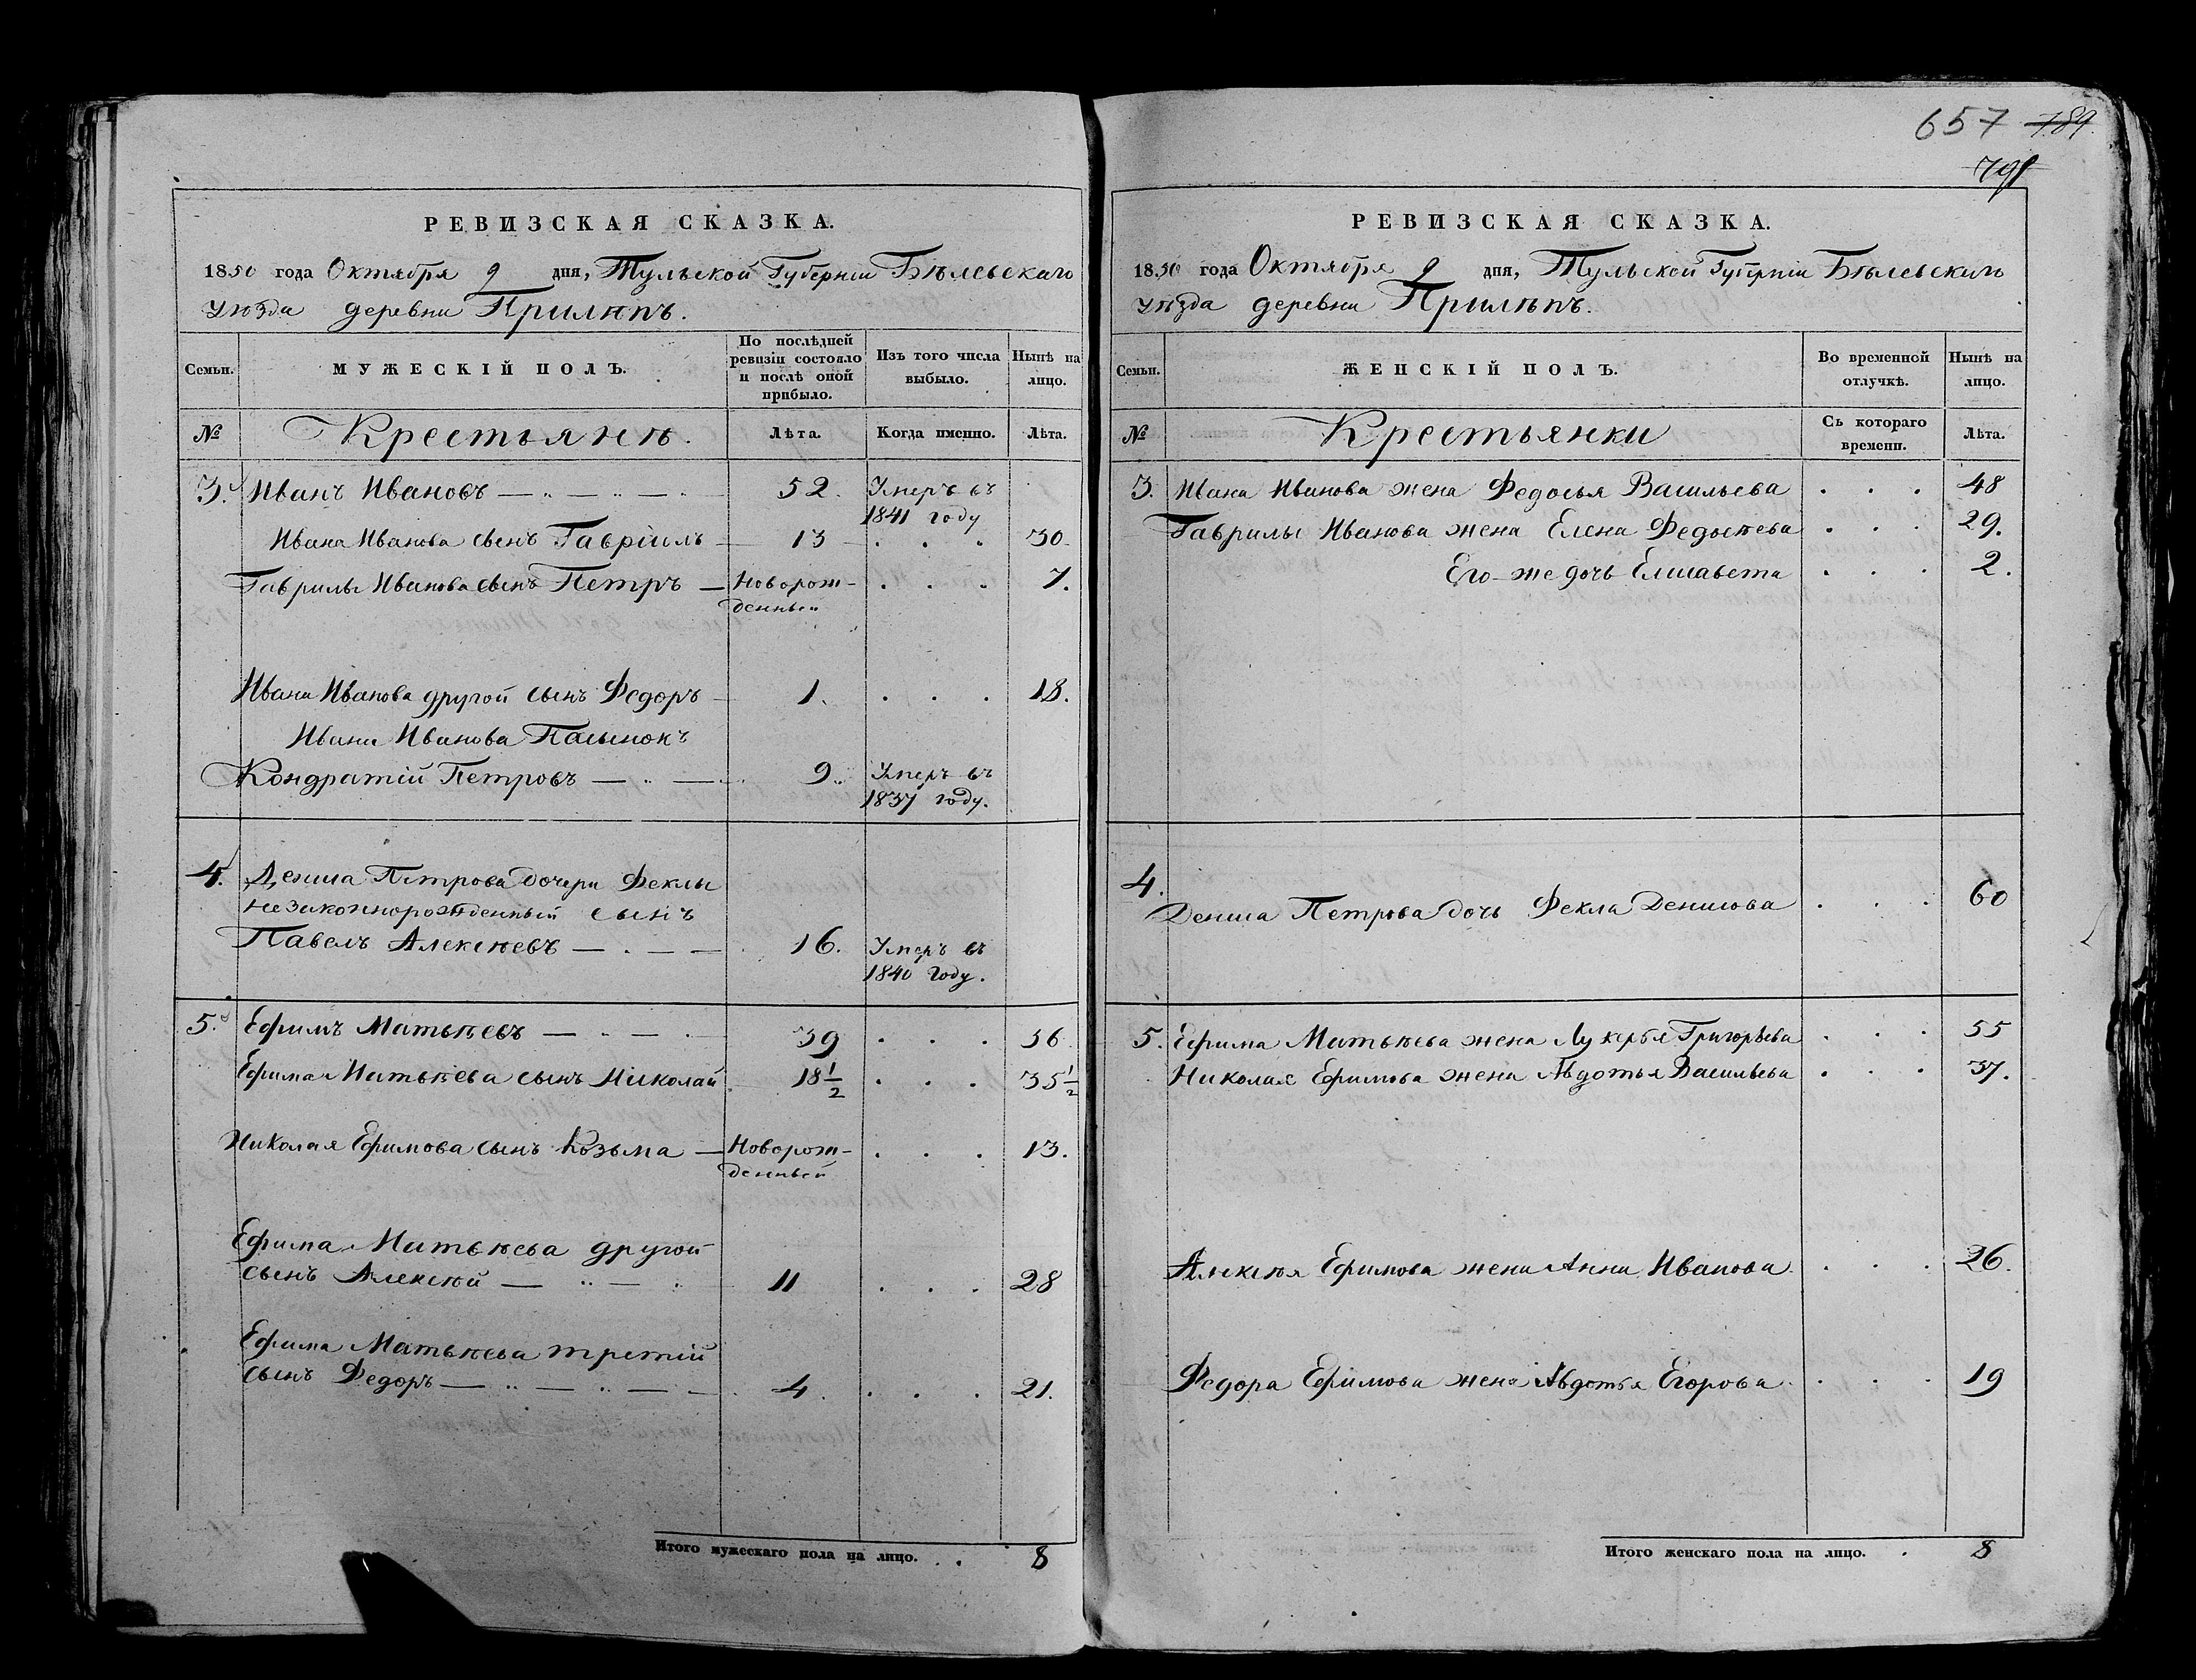 657 789.
РЕВИЗСКАЯ СКАЗКА.
1850 года Октября 9 дня, Тульской Губерніи Бѣлевскаго
уѣзда деревни Прилѣпъ.
Семьи.
МУЖЕСКІЙ ПОЛЪ.
По послѣдней
ревизіи состояло
и послѣ оной
прибыло.
Изъ того числа
выбыло.
Нынѣ на
лицо.
№ Крестьянѣ. Лѣта. Когда именно. Лѣта.
3. Иванъ Ивановъ 52. Умеръ въ
1841 году
Ивана Иванова сынъ Гавріилъ 13 . . . 30
Гаврилы Иванова сынъ Петръ Новорож- . . . 7.
денный
Ивана Иванова другой сынъ Федоръ 1. . . . 18.
Ивана Иванова Пасынокъ
Кондратій Петровъ 9. Умеръ въ
1837 году.
4. Дениса Петрова дочери Феклы
незаконнорожденный сынъ
Павелъ Алексѣевъ 16. Умеръ въ
1840 году.
5. Ефимъ Матвѣевъ 39 . . . 56
Ефима Матвѣева сынъ Николай 18 1/2 . . . 35 1/2
Николая Ефимова сынъ Козьма Новорож- . . . 13.
денный
Ефима Матвѣева другой
сынъ Алексѣй 11 . . . 28
Ефима Матвѣева третій
сынъ Федоръ 4. . . . 21.
Итого мужескаго пола на лицо. . . 8
РЕВИЗСКАЯ СКАЗКА.
1850 года Октября 9 дня, Тульской Губерніи Бѣлевскаго
уѣзда деревни Прилѣпъ.
Семьи.
ЖЕНСКІЙ ПОЛЪ.
Во временной
отлучкѣ.
Нынѣ на
лицо.
№ Крестьянки
Съ котораго
времени.
Лѣта.
3. Ивана Иванова жена Федосья Васильева . . . 48
Гаврилы Иванова жена Елена Федосѣева . . . 29.
Его-же дочь Елисавета . . . 2.
4.
Дениса Петрова дочь Фекла Денисова . . . 60
5. Ефима Матвѣева жена Лукерья Григорьева . . . 55
Николая Ефимова жена Авдотья Васильева . . . 37.
Алексѣя Ефимова жена Анна Иванова . . . 26.
Федора Ефимова жена Авдотья Егорова . . . 19
Итого женскаго пола на лицо. . 8